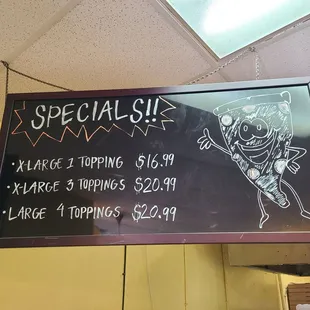 SPECIALS!!
• X-LARGE 1 TOPPING $16.99
• X-LARGE 3 TOPPINGS $20.99
• LARGE 4 TOPPINGS $20.99